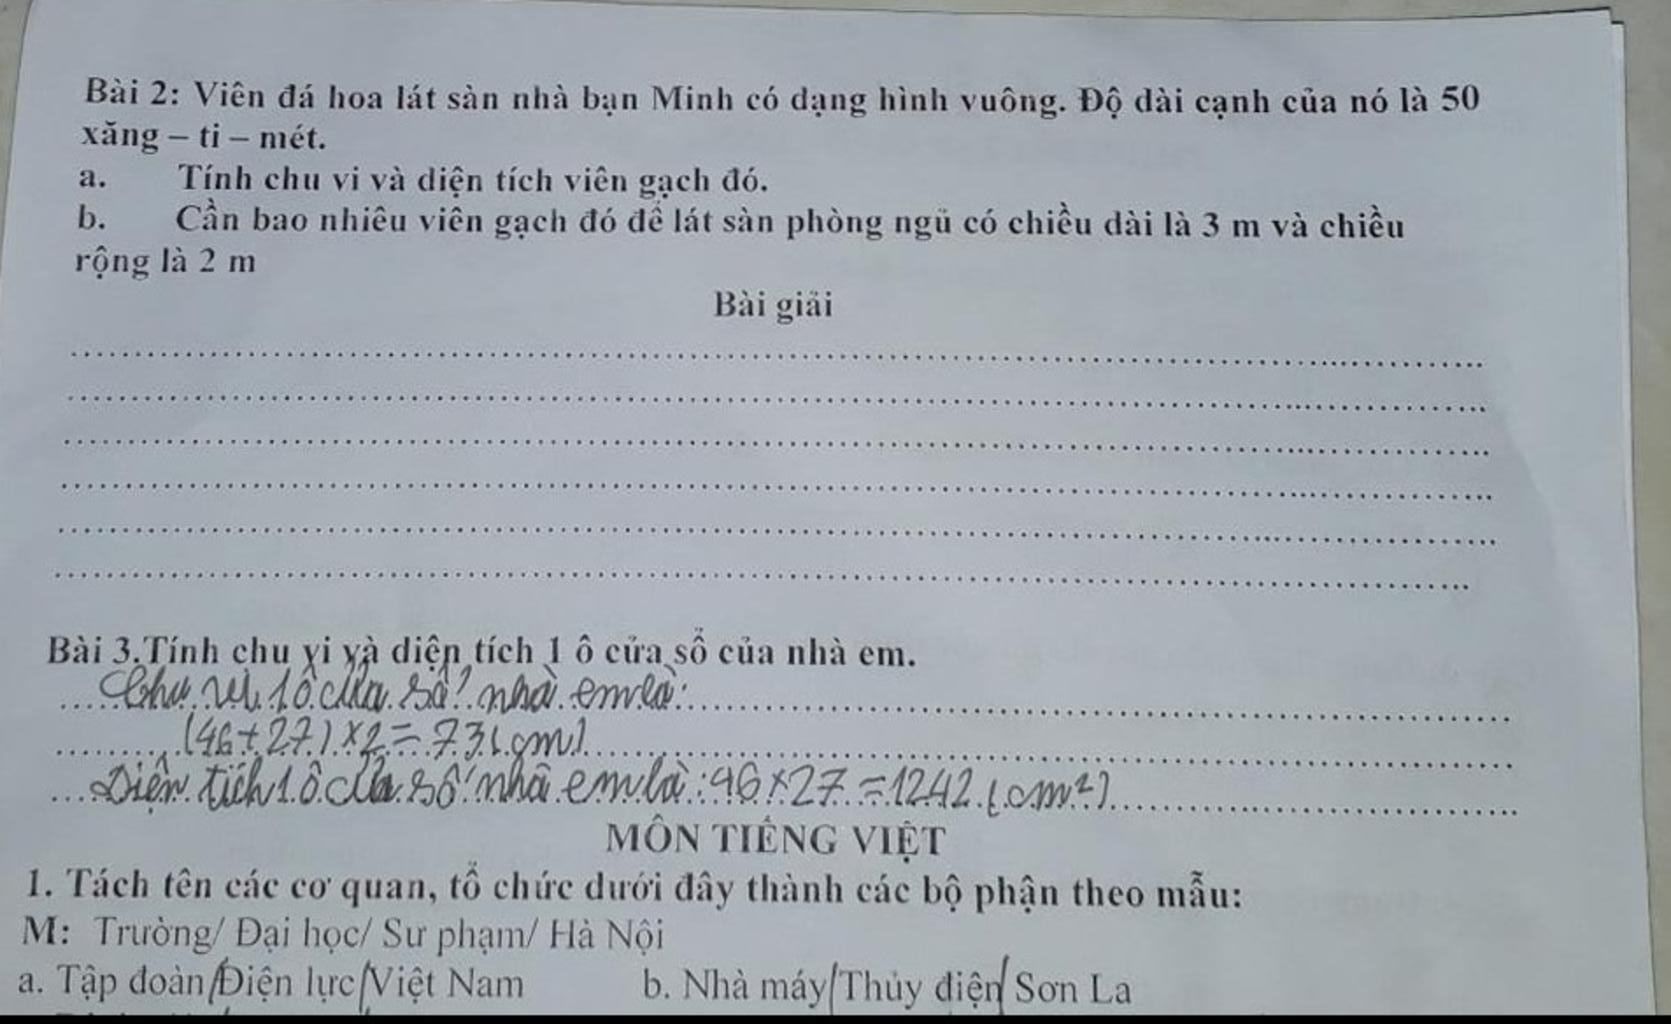 Bài 2: Viên đá hoa lát sàn nhà bạn Minh có dạng hình vuông. Độ dài cạnh của nó là 50
xăng – ti – mét.
a. Tính chu vi và diện tích viên gạch đó.
b. Cần bao nhiêu viên gạch đó để lát sàn phòng ngủ có chiều dài là 3 m và chiều
rộng là 2 m
Bài giải
Bài 3.Tính chu vi và diện tích 1 ô cửa sổ của nhà em.
Chu vi 1 ô cửa sổ nhà em là:
(46+27)×2=73(cm)
Diện tích 1 ô cửa sổ nhà em là: 46×27=1242 (cm²)
MÔN TIẾNG VIỆT
1. Tách tên các cơ quan, tổ chức dưới đây thành các bộ phận theo mẫu:
M: Trường/ Đại học/ Sư phạm/ Hà Nội
a. Tập đoàn/Điện lực/Việt Nam b. Nhà máy/Thủy điện/ Sơn La